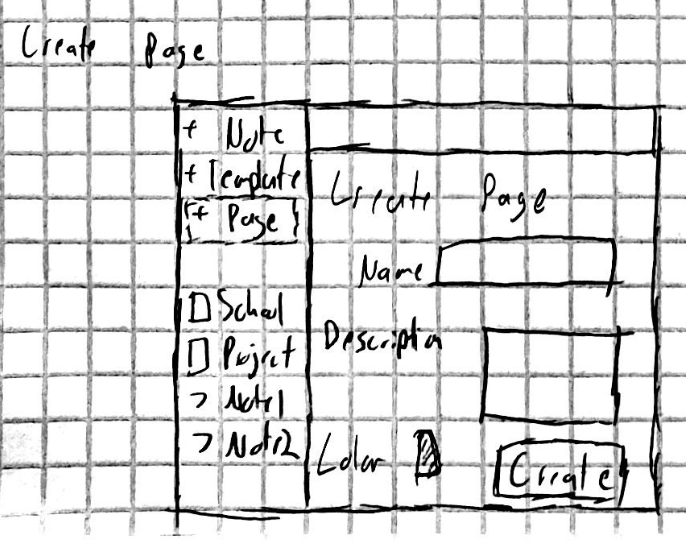 Create Page
+ Note
+ Template
+ Page
School
Project
> Note1
> Note2
Create Page
Name
Description
Color
Create